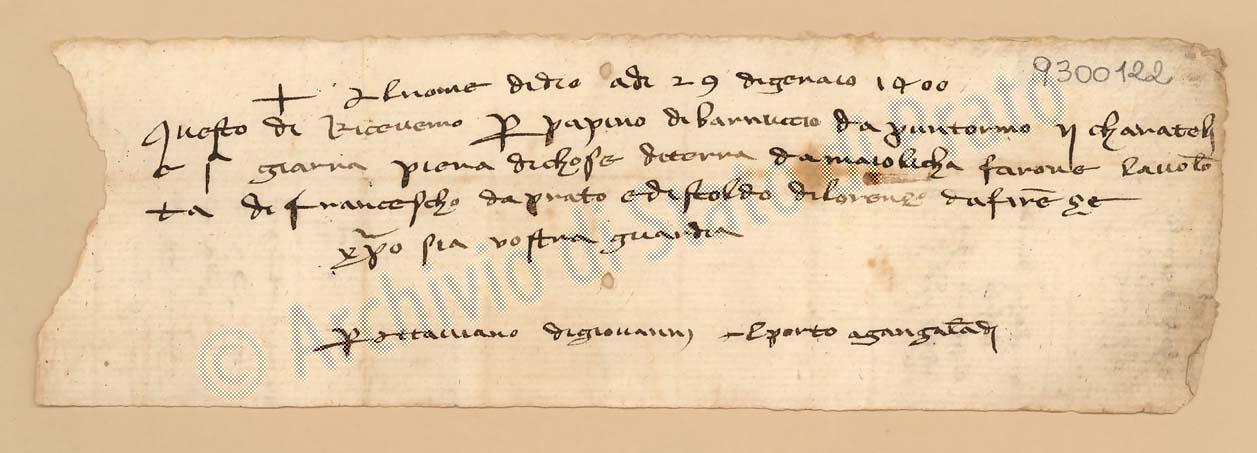 9300122
+ Al nome didio adi 29 digenaio 1400
Questo di Ricevemo P papino dibarnuccio da puntormo ii charateli
e i giarra piena dichose diterra damaiolicha farone lavolo
ta di francescho daprato edistoldo dilorenzo dafirēze
xpo sia vostra guardia
P attaviano digiovanni alporto agangalādi
© Archivio di Stato di Prato